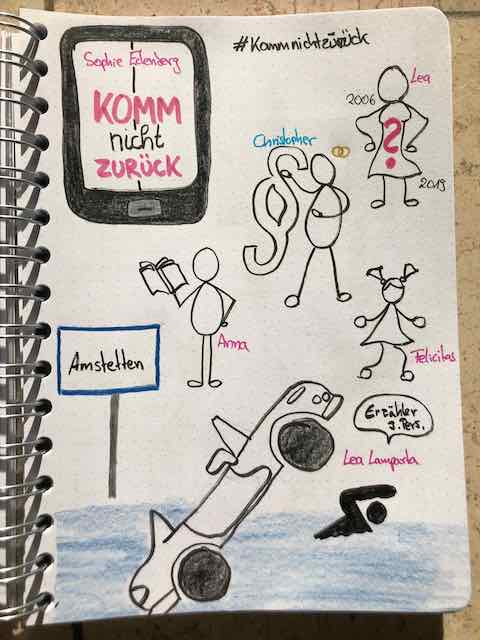 #Kommnichtzurück
Sophie Edenberg
KOMM
nicht
ZURÜCK
Lea
2006
?
2019
Christopher
Anna
Felicitas
Amstetten
Erzähler
3. Pers.
Lea Lamparta